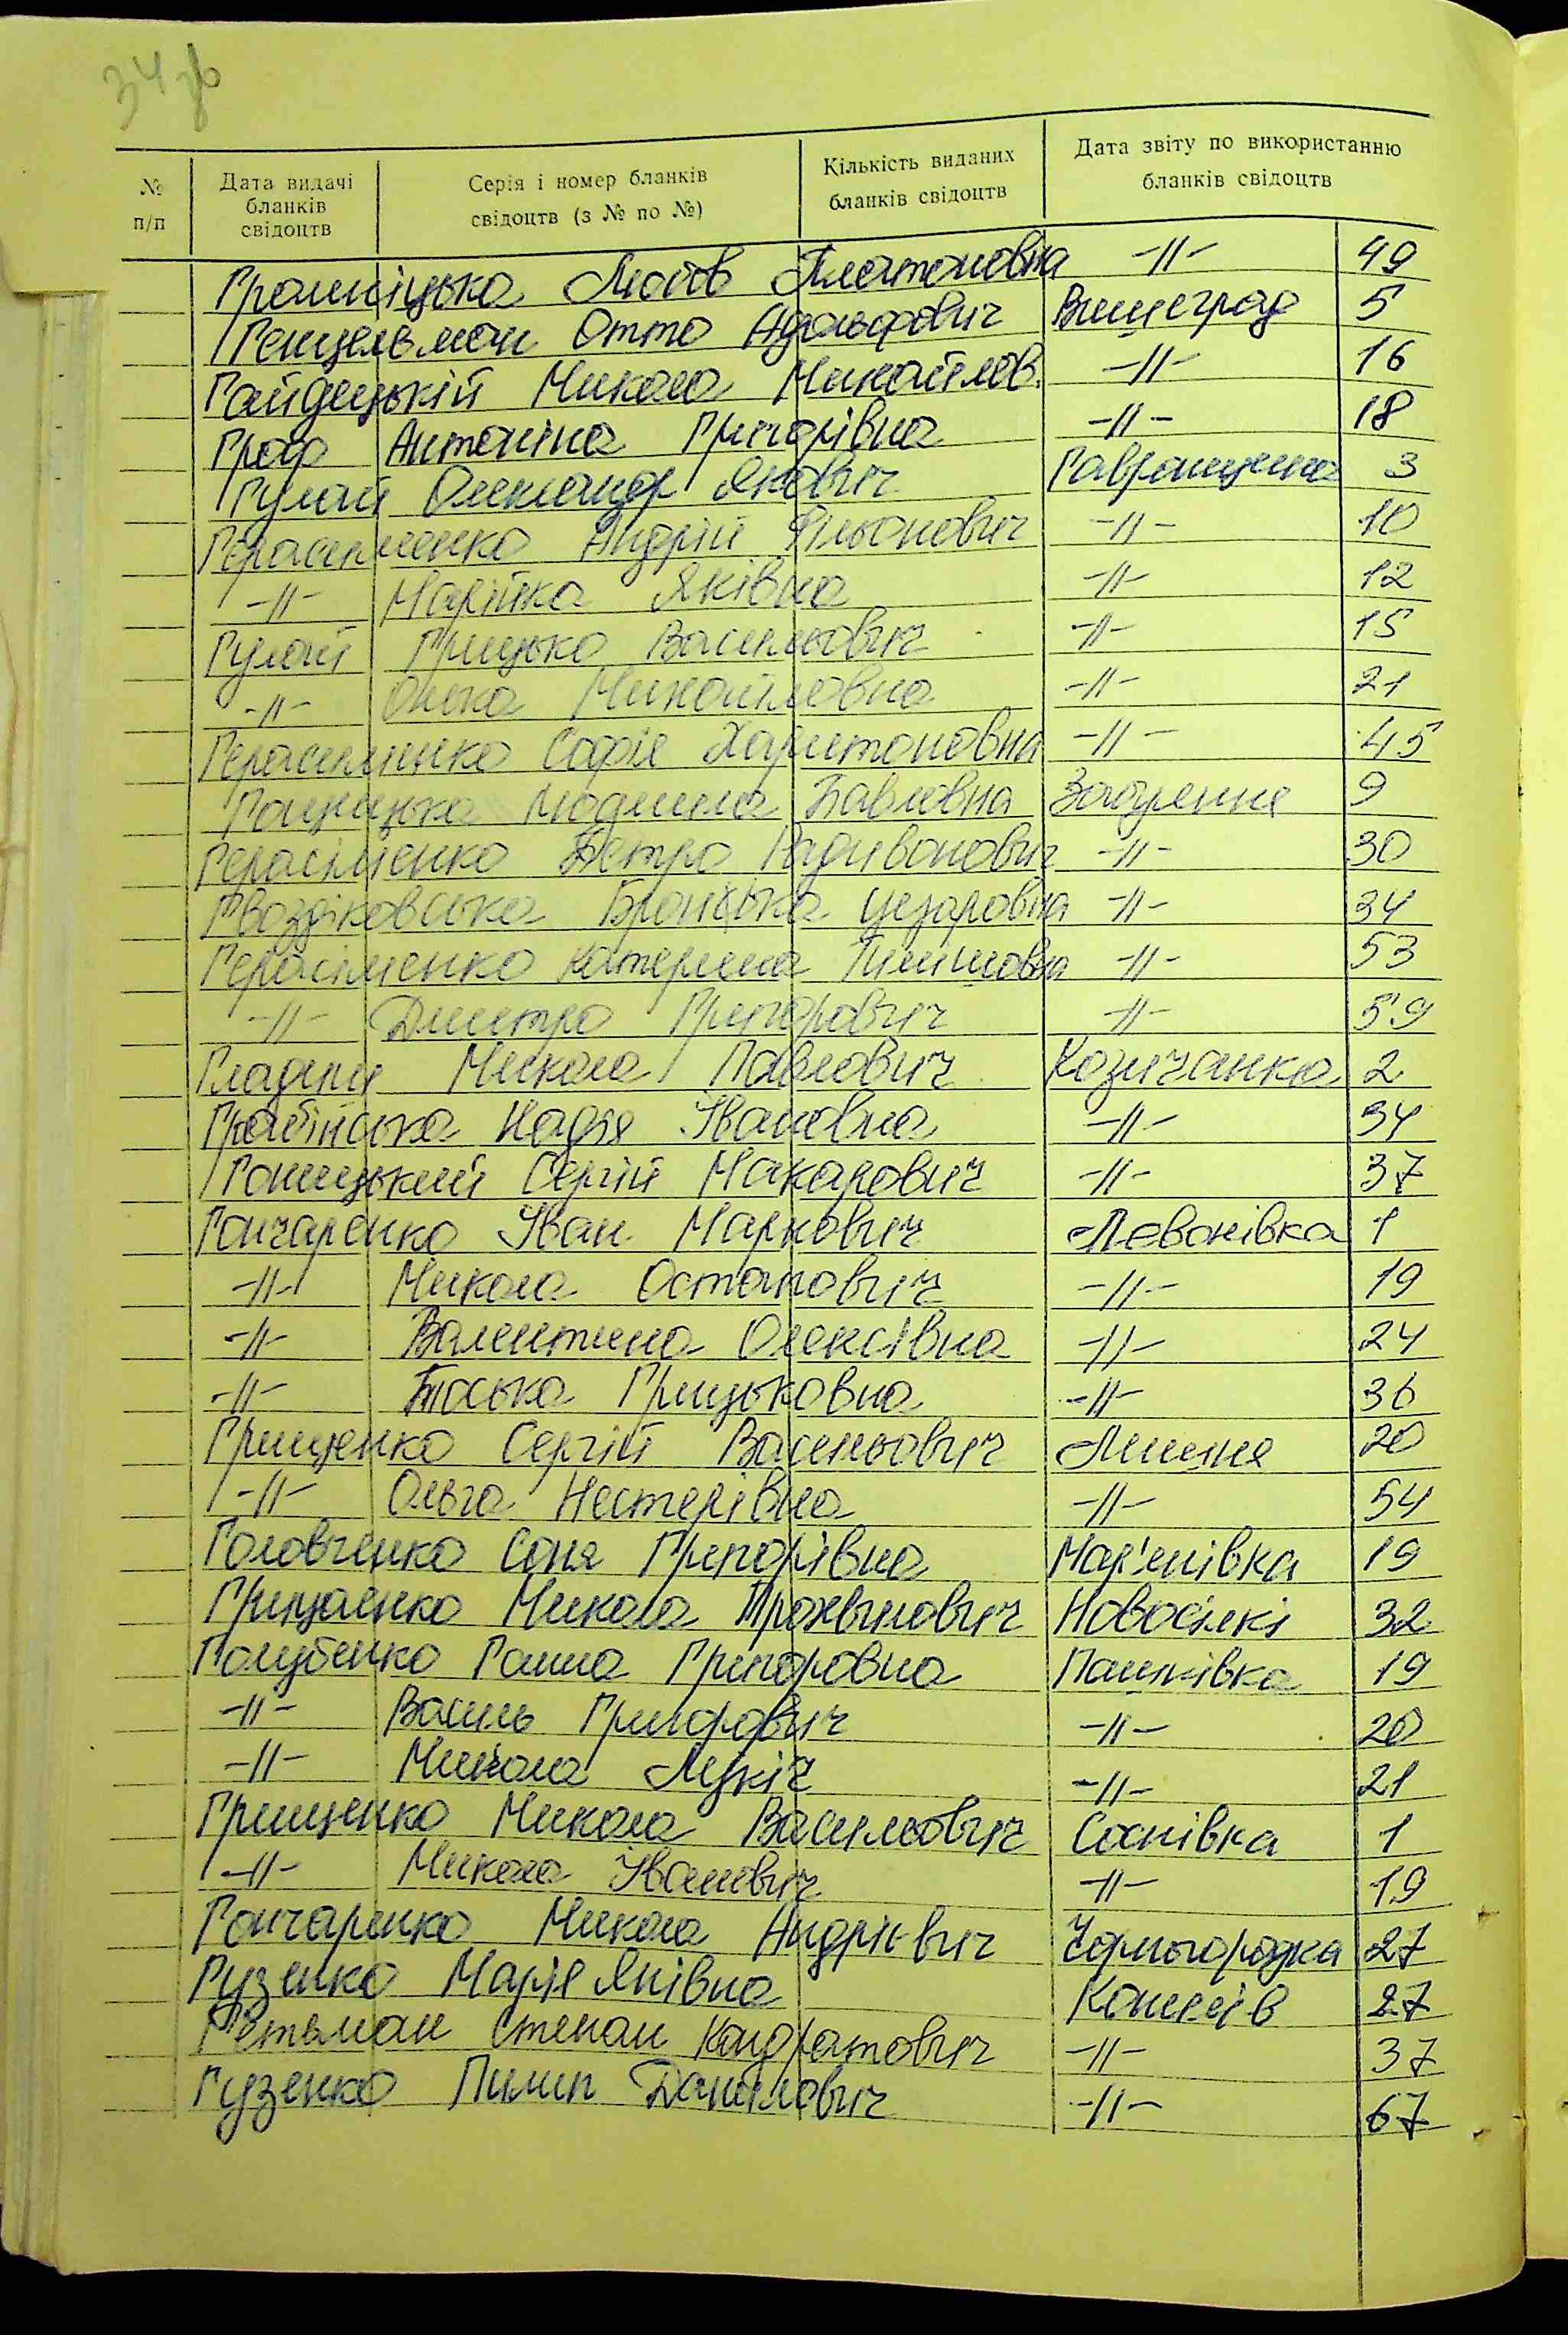 34 зв
№ п/п
Дата видачі бланків свідоцтв
Серія і номер бланків свідоцтв (з № по №)
Кількість виданих бланків свідоцтв
Дата звіту по використанню бланків свідоцтв
Любов Платоновна -//- 49
Генцельман Отто Адольфович Вишеград 5
Гайдецькій Микола Михайлов. -//- 16
Граф Антоніна Григорівна -//- 18
Гулай Олександр Якович Гавронщина 3
Герасименко Андрій -//- 10
-//- Марійка Яківна -//- 12
Гулай Грицько Васильович -//- 15
-//- Олька Михайловна -//- 21
Герасименко Софія Харитоновна -//- 45
Людмила Павловна Забуяння 9
Герасіменко Петро Радивонович -//- 30
Гвоздіковська Броніська Цезаровна -//- 34
Герасіменко Катерина Тимішовна -//- 53
-//- Дмитро Григорович -//- 59
Гладкий Микола Павлович Козичанка 2
Грабінська Надія Івановна -//- 34
Гоницький Сергій Макарович -//- 37
Гончаренко Іван Маркович Левонівка 1
-//- Микола Остапович -//- 19
-//- Валентина Олексівна -//- 24
-//- Тоська Грицьковна -//- 36
Грищенко Сергій Васильович Липня 20
-//- Ольга Нестерівна -//- 54
Головченко Соня Григорівна Мар'янівка 19
Грицаенко Микола Новосілкі 32
Голубенко Ганна Григоровна Пашківка 19
-//- Василь Григорович -//- 20
-//- Микола Лукіч -//- 21
Грищенко Микола Васильович Соснівка 1
-//- Микола Іванович -//- 19
Гончаренко Микола Андрієвич Чорногородка 27
Гузенко Марія Яківна Копиеів 27
Гетьман Степан Кондратович -//- 37
Гузенко Пилип Данилович -//- 67